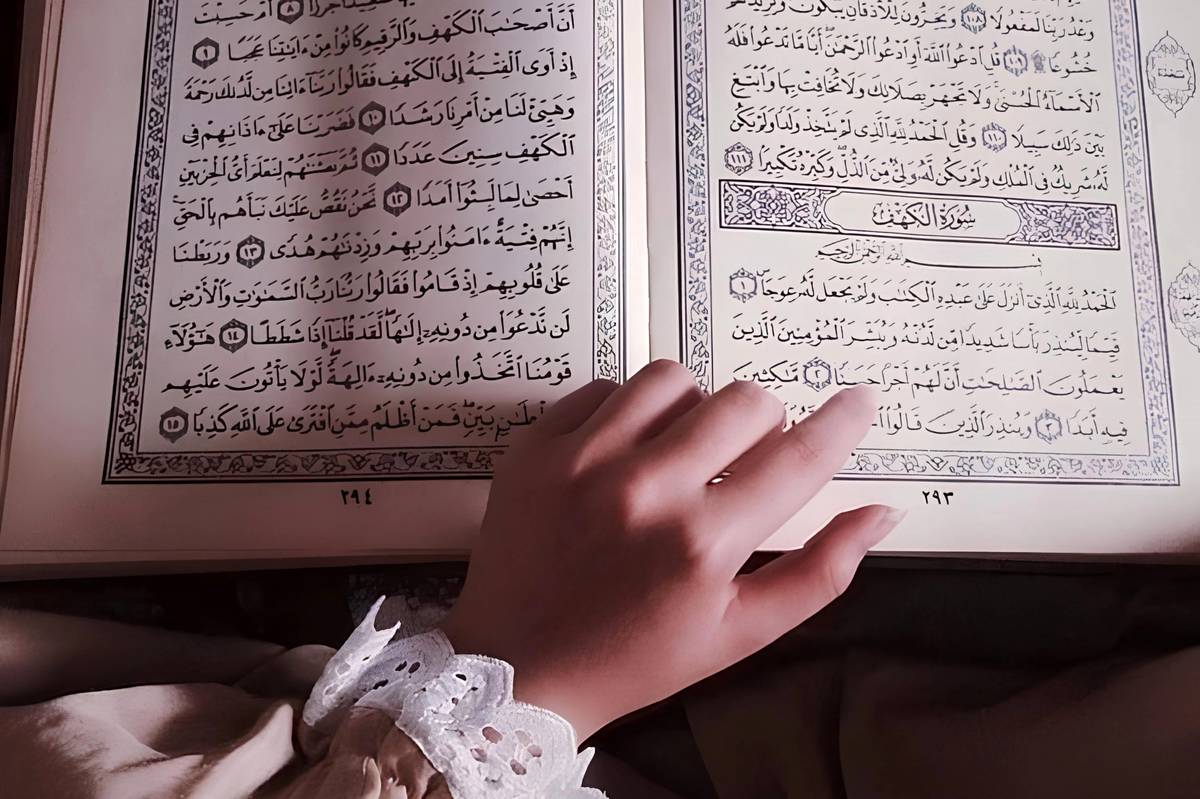 وَعْدُ رَبِّنَا لَمَفْعُولًا ١٠٨ وَيَخِرُّونَ لِلْأَذْقَانِ يَبْكُونَ وَيَزِيدُهُمْ
خُشُوعًا ۩ ١٠٩ قُلِ ادْعُوا۟ اللَّهَ أَوِ ادْعُوا۟ الرَّحْمَٰنَ أَيًّا مَّا تَدْعُوا۟ فَلَهُ
الْأَسْمَاءُ الْحُسْنَىٰ وَلَا تَجْهَرْ بِصَلَاتِكَ وَلَا تُخَافِتْ بِهَا وَابْتَغِ
بَيْنَ ذَٰلِكَ سَبِيلًا ١١٠ وَقُلِ الْحَمْدُ لِلَّهِ الَّذِى لَمْ يَتَّخِذْ وَلَدًا وَلَمْ يَكُن
لَّهُ شَرِيكٌ فِى الْمُلْكِ وَلَمْ يَكُن لَّهُ وَلِىٌّ مِّنَ الذُّلِّ وَكَبِّرْهُ تَكْبِيرًا ١١١
سُورَةُ الْكَهْفِ
بِسْمِ اللَّهِ الرَّحْمَٰنِ الرَّحِيمِ
الْحَمْدُ لِلَّهِ الَّذِى أَنزَلَ عَلَىٰ عَبْدِهِ الْكِتَٰبَ وَلَمْ يَجْعَل لَّهُ عِوَجَا ١
قَيِّمًا لِّيُنذِرَ بَأْسًا شَدِيدًا مِّن لَّدُنْهُ وَيُبَشِّرَ الْمُؤْمِنِينَ الَّذِينَ
يَعْمَلُونَ الصَّٰلِحَٰتِ أَنَّ لَهُمْ أَجْرًا حَسَنًا ٢ مَّٰكِثِينَ
فِيهِ أَبَدًا ٣ وَيُنذِرَ الَّذِينَ قَالُوا۟
٢٩٣
٨ أَمْ حَسِبْتَ
أَنَّ أَصْحَٰبَ الْكَهْفِ وَالرَّقِيمِ كَانُوا۟ مِنْ ءَايَٰتِنَا عَجَبًا ٩
إِذْ أَوَى الْفِتْيَةُ إِلَى الْكَهْفِ فَقَالُوا۟ رَبَّنَا ءَاتِنَا مِن لَّدُنكَ رَحْمَةً
وَهَيِّئْ لَنَا مِنْ أَمْرِنَا رَشَدًا ١٠ فَضَرَبْنَا عَلَىٰ ءَاذَانِهِمْ فِى
الْكَهْفِ سِنِينَ عَدَدًا ١١ ثُمَّ بَعَثْنَٰهُمْ لِنَعْلَمَ أَىُّ الْحِزْبَيْنِ
أَحْصَىٰ لِمَا لَبِثُوا۟ أَمَدًا ١٢ نَّحْنُ نَقُصُّ عَلَيْكَ نَبَأَهُم بِالْحَقِّ
إِنَّهُمْ فِتْيَةٌ ءَامَنُوا۟ بِرَبِّهِمْ وَزِدْنَٰهُمْ هُدًى ١٣ وَرَبَطْنَا
عَلَىٰ قُلُوبِهِمْ إِذْ قَامُوا۟ فَقَالُوا۟ رَبُّنَا رَبُّ السَّمَٰوَٰتِ وَالْأَرْضِ
لَن نَّدْعُوَا۟ مِن دُونِهِ إِلَٰهًا لَّقَدْ قُلْنَا إِذًا شَطَطًا ١٤ هَٰؤُلَاءِ
قَوْمُنَا اتَّخَذُوا۟ مِن دُونِهِ ءَالِهَةً لَّوْلَا يَأْتُونَ عَلَيْهِم
بَيِّنٍ فَمَنْ أَظْلَمُ مِمَّنِ افْتَرَىٰ عَلَى اللَّهِ كَذِبًا ١٥
٢٩٤